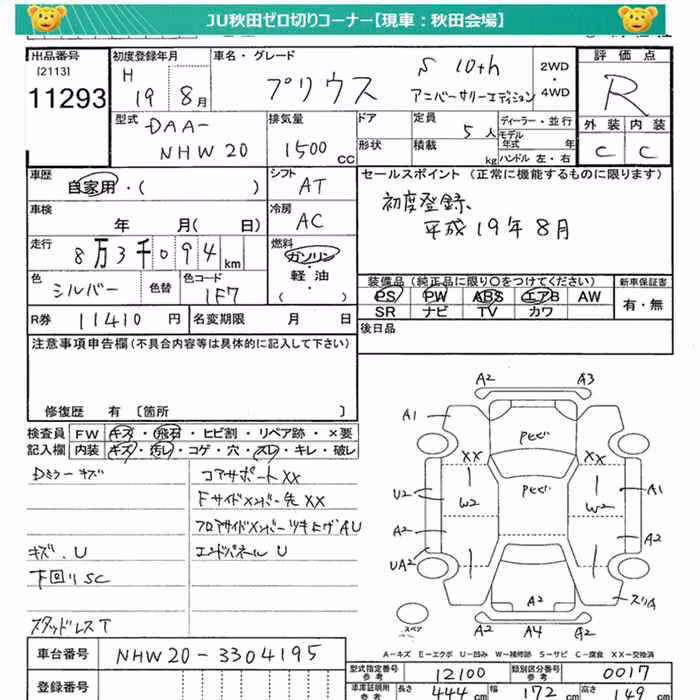 JU秋田ゼロ切りコーナー【現車：秋田会場】
出品番号
[2113]
11293
初度登録年月
H
19 8月
車名・グレード
プリウス
S 10th
アニバーサリーエディション
2WD
・
4WD
評価点
R
外装 内装
C C
型式
DAA-
NHW20
排気量
1500 CC
ドア
形状
定員
5人
積載
kg
ディーラー・並行
モデル
年式 年
ハンドル 左・右
車歴
自家用・( )
シフト
AT
セールスポイント (正常に機能するものに限ります)
初度登録、
平成19年8月
車検
年 月( 日)
冷房
AC
走行
8万3千094 km
燃料
ガソリン
軽・油
( ・ )
色
シルバー
色替
色コード
1F7
装備品 (純正品に限り○をつけてください)
PS PW ABS エアB AW
SR ナビ TV カワ
新車保証書
有・無
R券 11410 円
名変期限 月 日
後日品
注意事項申告欄(不具合内容等は具体的に記入して下さい)
修復歴 有 [箇所 ]
検査員 FW キズ・飛石・ヒビ割・リペア跡・×要
記入欄 内装 キズ・汚レ・コゲ・穴・スレ・キレ・破レ
Dミラーキズ
コアサポートXX
Fサイドメンバー先XX
フロアサイドメンバーツキ上ゲAU
キズ.U
エンドパネルU
下回りSC
スタッドレスT
A2 A3
A1
PヒビU
XX XX
PヒビU
U2 W2 W2 A1
A2 A2
UA2
A2
スリA
スペア
A2 A4 A2
A−キズ E−エクボ U−凹み W−補修跡 S−サビ C−腐食 XX−交換済
車台番号 NHW20-3304195
登録番号
型式指定番号
参考
12100
類別区分番号
参考
0017
車庫証明用
参考
長さ 444 cm
幅 172 cm
高さ 149 cm